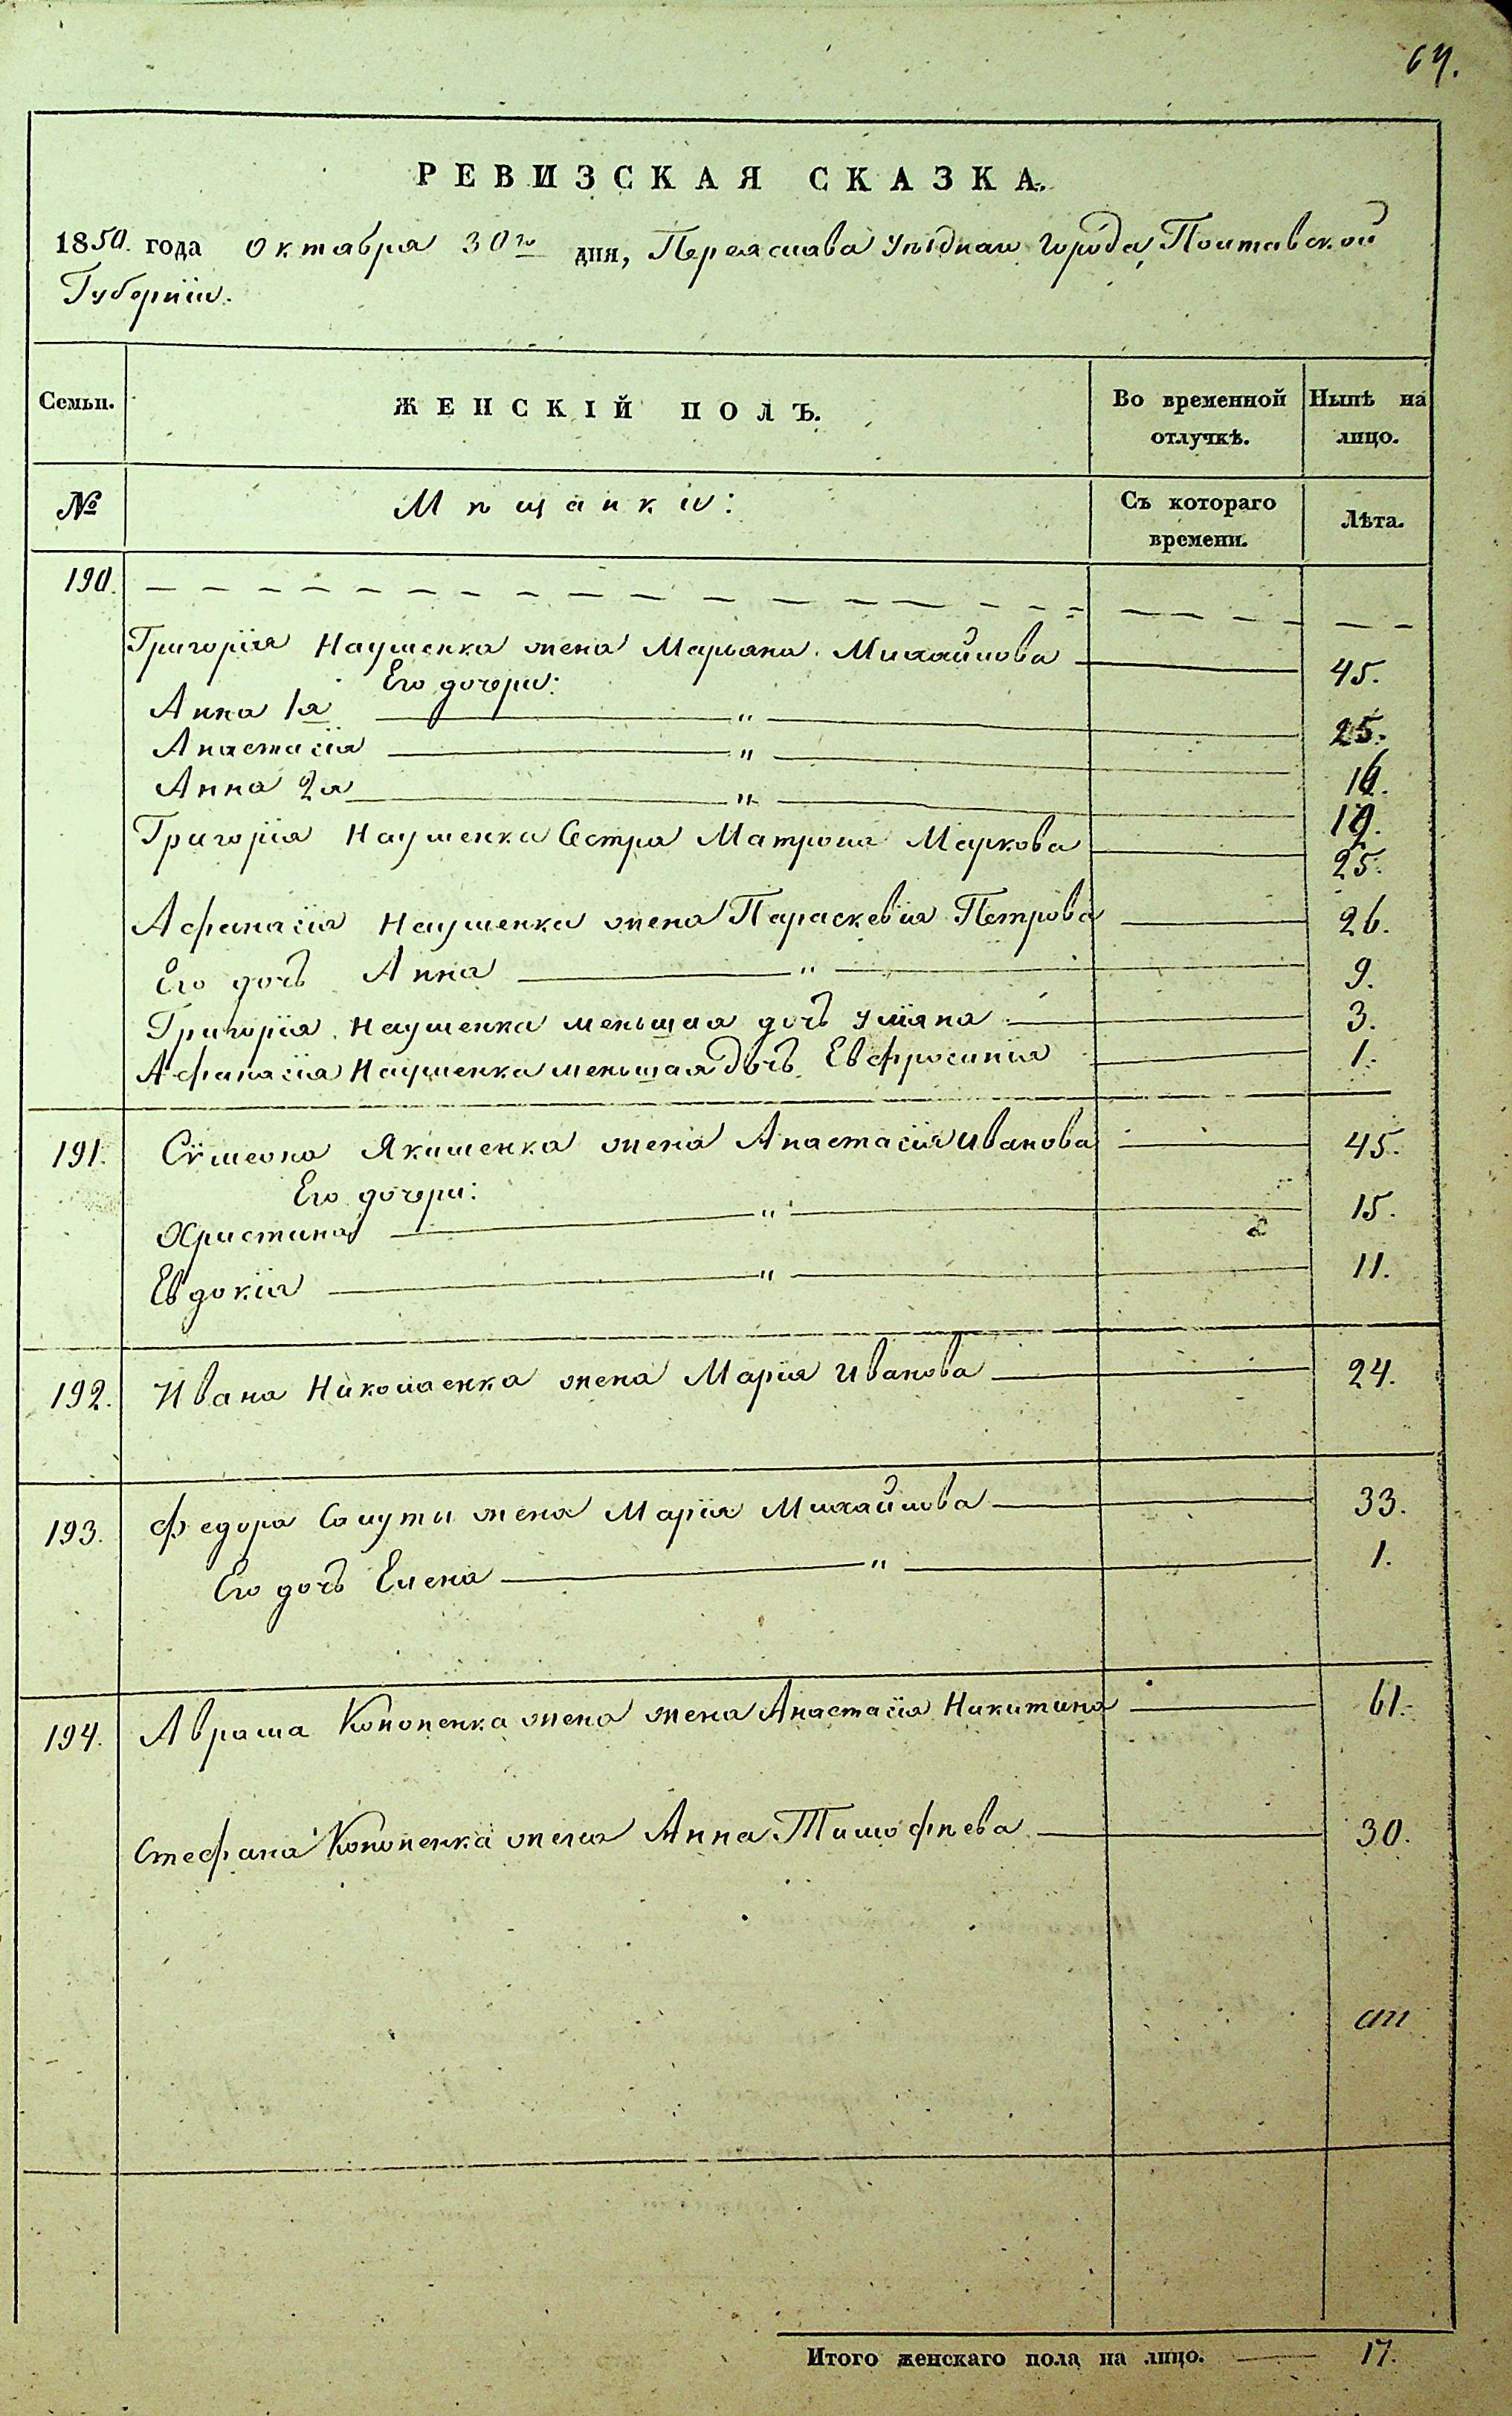 64.
РЕВИЗСКАЯ СКАЗКА.
1850. года Октября 30го дня, Переяслава Уѣзднаго города, Полтавской
Губерніи.
Семьи. ЖЕНСКІЙ ПОЛЪ. Во временной отлучкѣ. Нынѣ на лицо.
№ Мѣщанки: Съ котораго времени. Лѣта.
190.
Григорія Наушенка жена Марьяна Михайлова 45.
Его дочери:
Анна 1я " 25.
Анастасія " 16.
Анна 2я " 19.
Григорія Наушенка Сестра Матрона Маркова 25.
Афанасія Наушенка жена Параскевія Петрова 26.
Его дочь Анна " 9.
Григорія Наушенка меньшая дочь Уліяна 3.
Афанасія Наушенка меньшая дочь Евфросинія 1.
191. Сѵмеона Якименка жена Анастасія Иванова 45.
Его дочери:
Христина " 15.
Евдокія " 11.
192. Ивана Николаенка жена Марія Иванова 24.
193. Федора Сопуты жена Марія Михайлова 33.
Его дочь Елена " 1.
194. Аврама Кононенка жена жена Анастасія Никитина 61.
Стефана Кононенка жена Анна Тимофѣева 30.
Итого женскаго пола на лицо. 17.